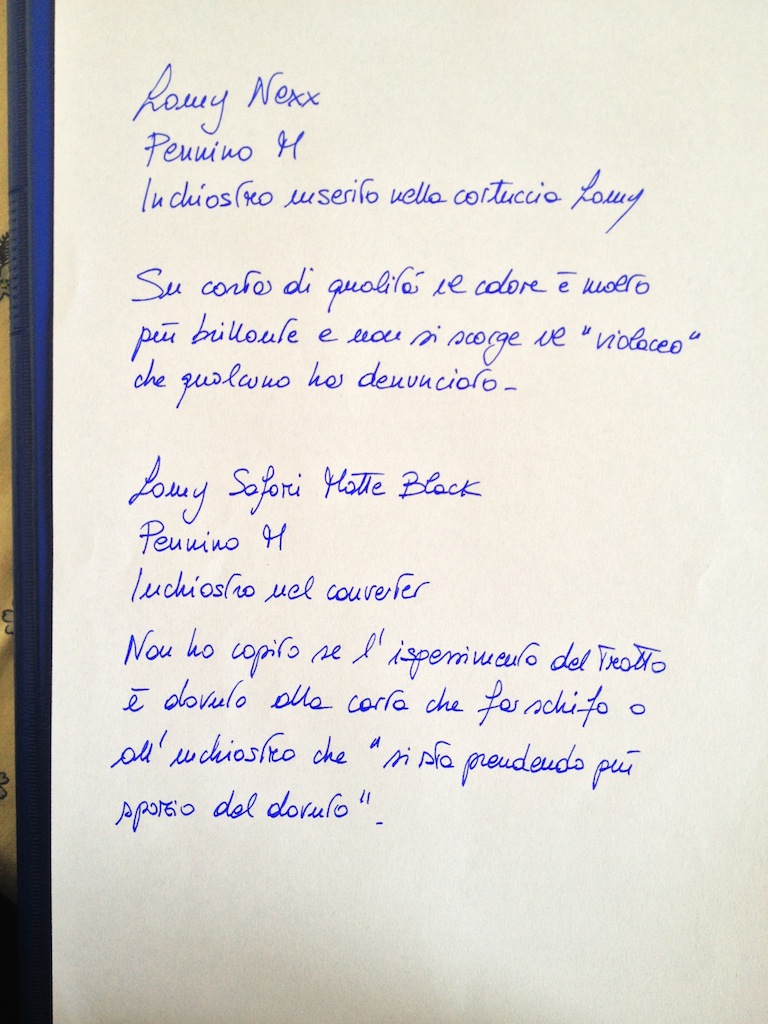 Lamy Nexx
Pennino M
Inchiostro inserito nella cartuccia Lamy
Su carta di qualità il colore è molto
più brillante e non si scorge il "violaceo"
che qualcuno ha denunciato -
Lamy Safari Matte Black
Pennino M
Inchiostro nel converter
Non ho capito se l'ispessimento del tratto
è dovuto alla carta che fa schifo o
all'inchiostro che "si sta prendendo più
spazio del dovuto". -